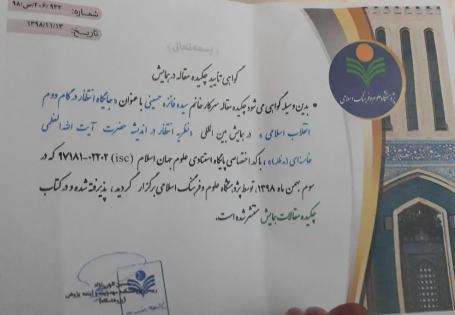 شماره: ۹۸/ص/۲۰۶/۹۳۲
تاریخ: ۱۳۹۸/۱۱/۱۳
(بسمه‌تعالی)
گواهی تأیید چکیده مقاله در همایش
بدین وسیله گواهی می شود چکیده مقاله سرکار خانم سیده فائزه حسینی با عنوان «جایگاه انتظار در گام دوم
انقلاب اسلامی» در همایش بین المللی «نظریه انتظار در اندیشه حضرت آیت الله العظمی
خامنه‌ای (مدظله)» با کد اختصاصی پایگاه استنادی علوم جهان اسلام (isc) ۹۷۱۸۱-۰۲۲۰۲ که در
سوم بهمن ماه ۱۳۹۸، توسط پژوهشگاه علوم و فرهنگ اسلامی برگزار گردید، پذیرفته شده و در کتاب
چکیده مقالات همایش منتشر شده است.
پژوهشگاه علوم و فرهنگ اسلامی